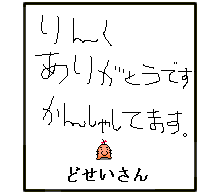 りんく
ありがとうです
かんしゃしてます。
どせいさん